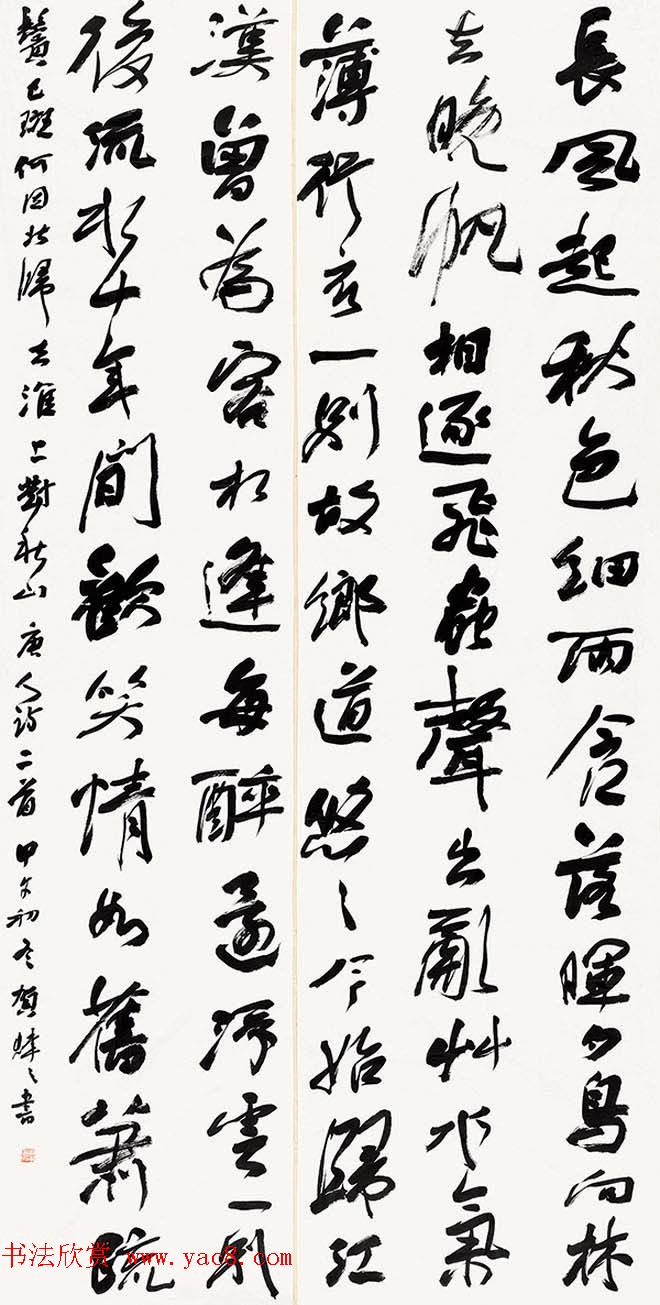 長風起秋色細雨含落暉夕鳥向林
去晚帆相逐飛蟲聲出亂艸水氣
薄行衣一別故鄉道悠々今始歸江
漢曾為客相逢每醉還浮雲一別
後流水十年間歡笑情如舊蕭疏
鬢已斑何因北歸去淮上對秋山 唐人詩二首 甲午初冬賀 書
书法欣赏 www.yac8.com